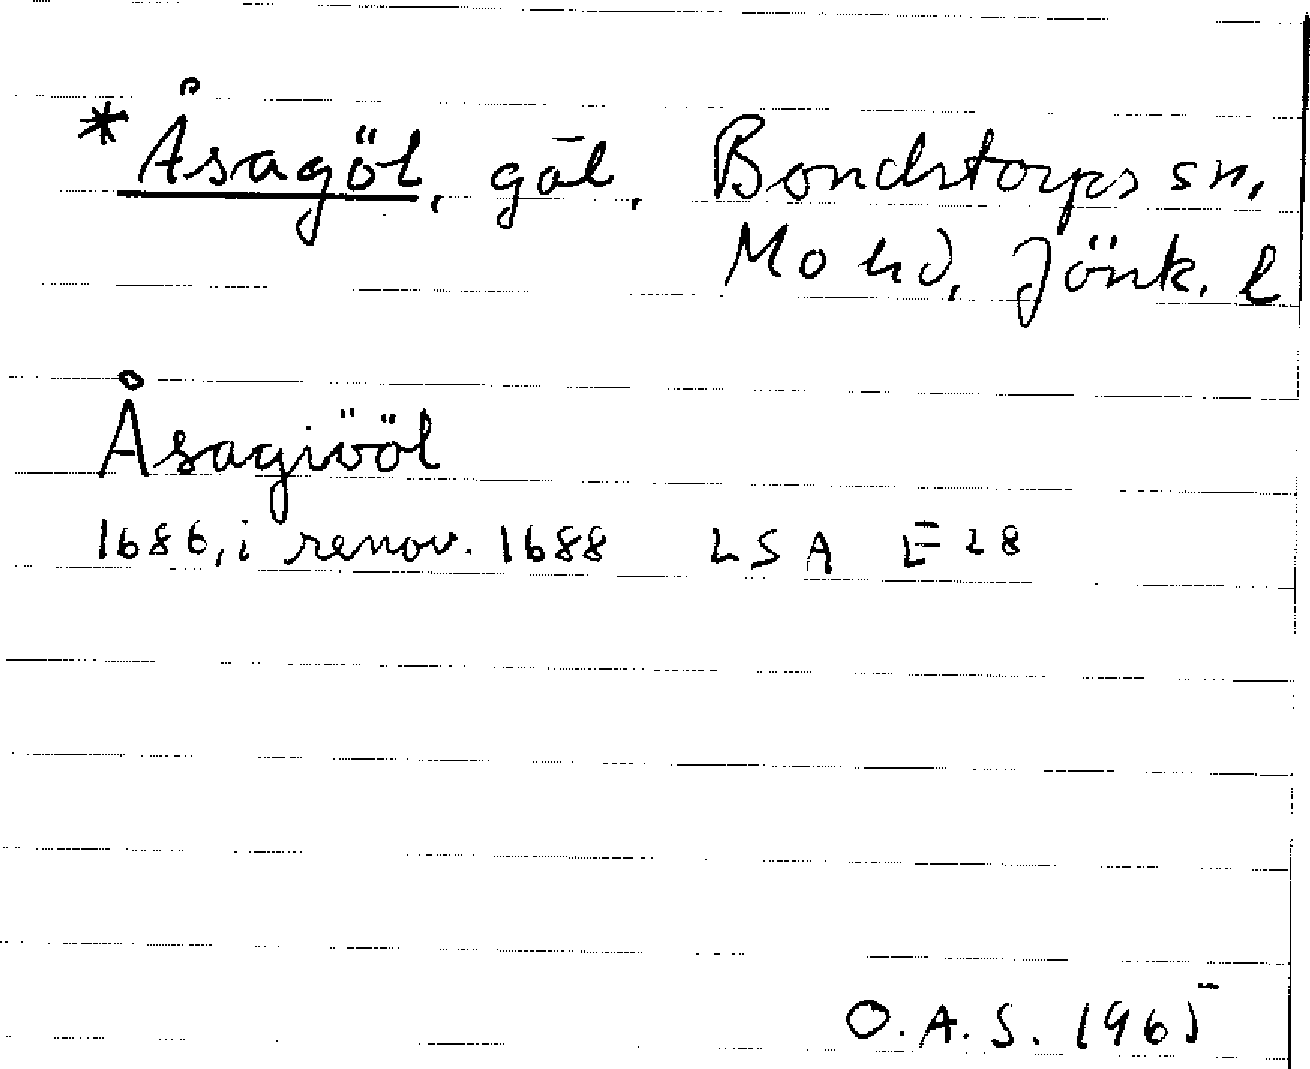 *Åsagöl, gāl. Bondstorps sn,
Mo hd, Jönk. l
Åsagiööl
1686, i renov. 1688 LSA E 28
O.A.S. 1965